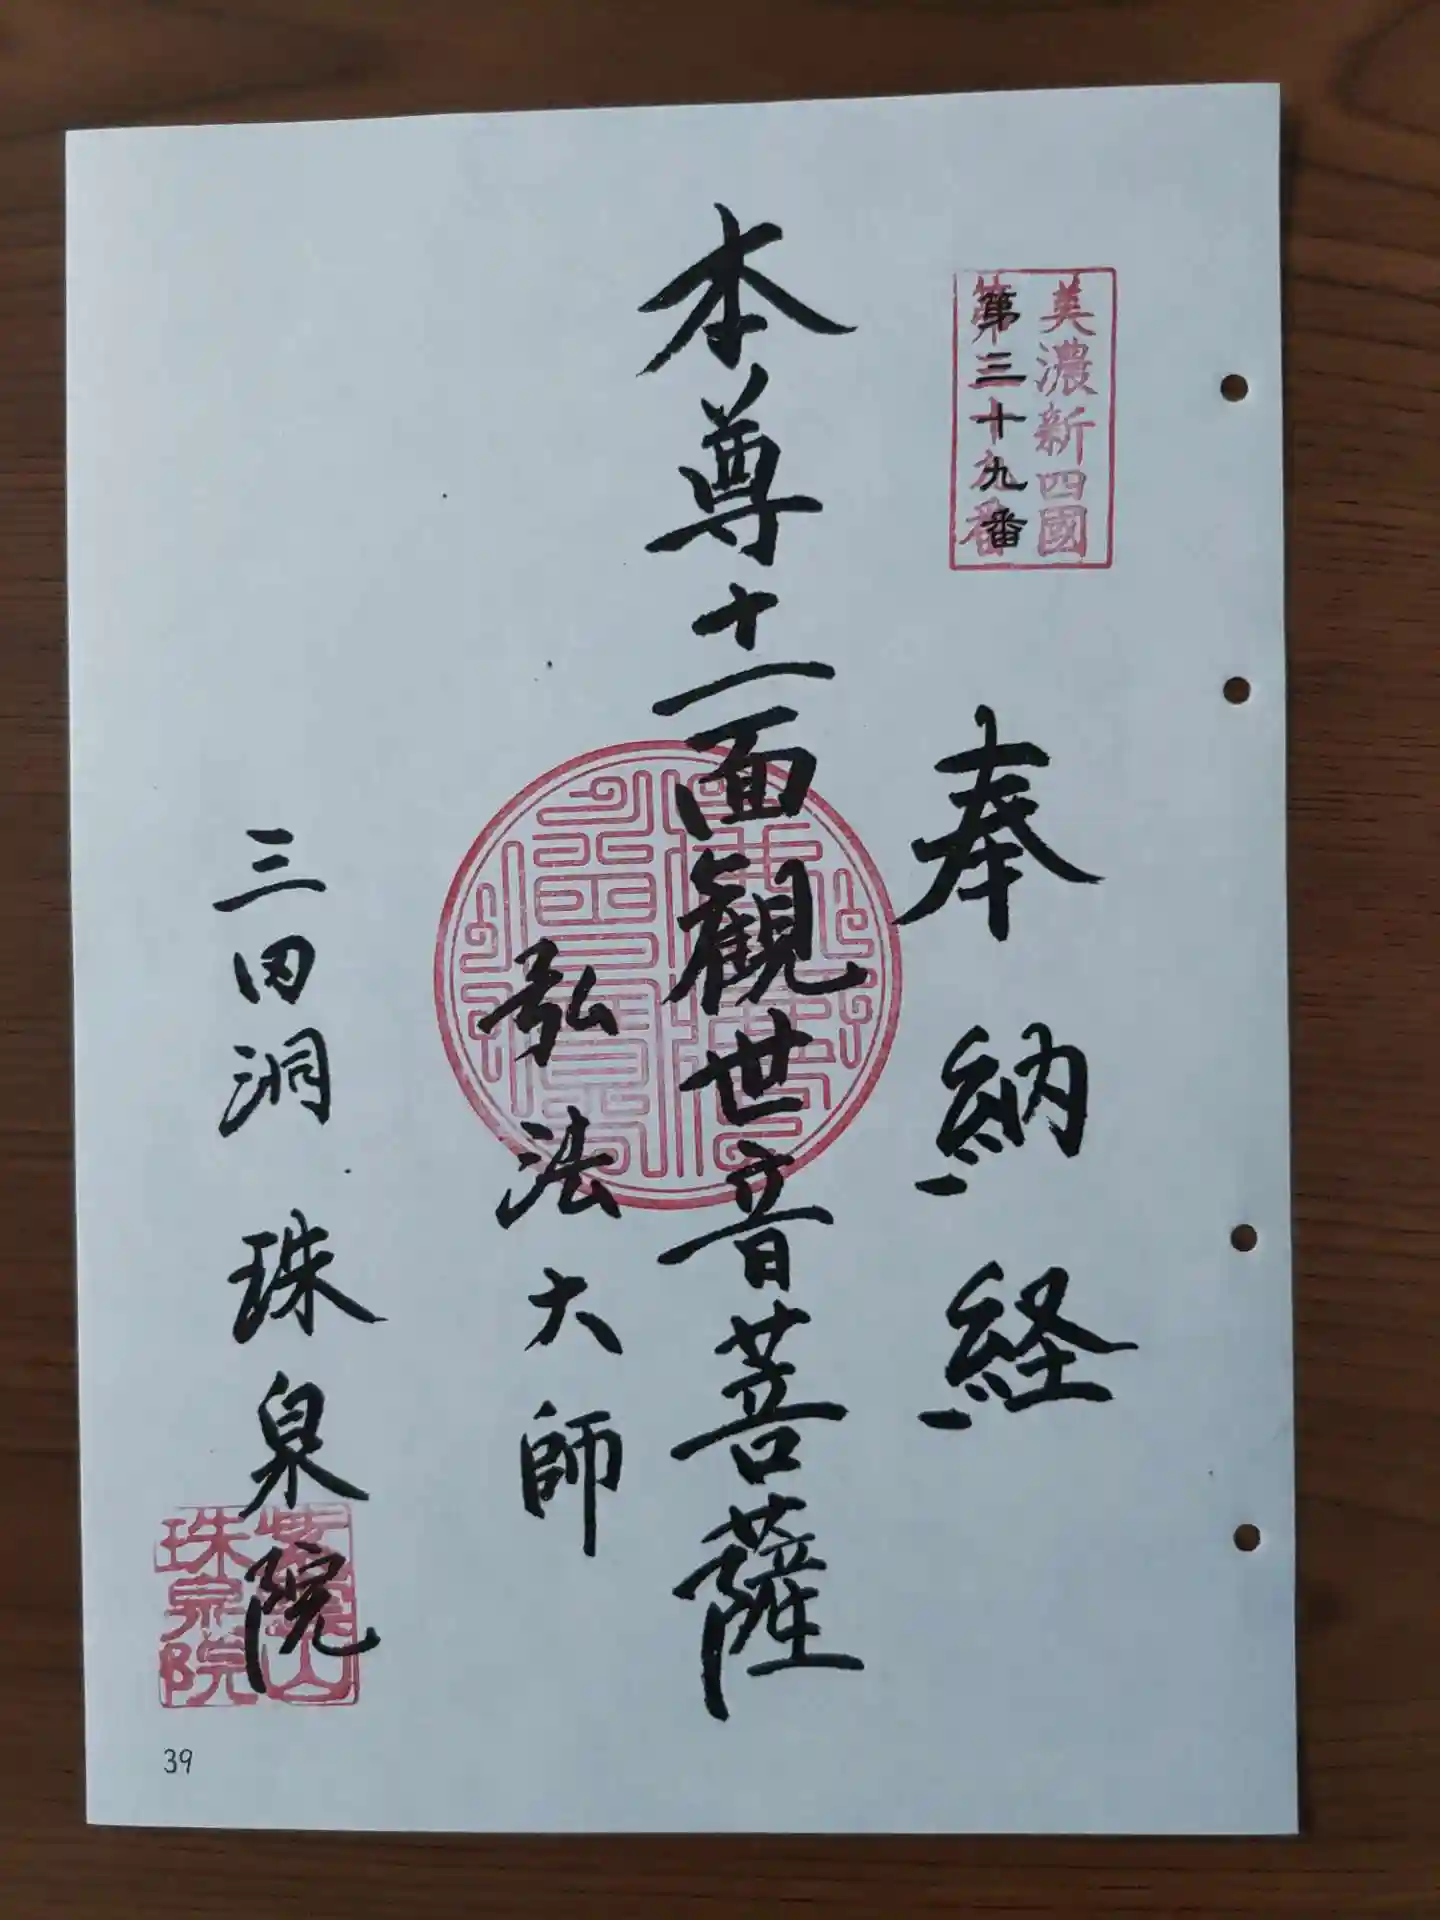 美濃新四國
第三十九番
奉納経
本尊十一面観世音菩薩
弘法大師
三田洞 珠泉院
珠泉院
39